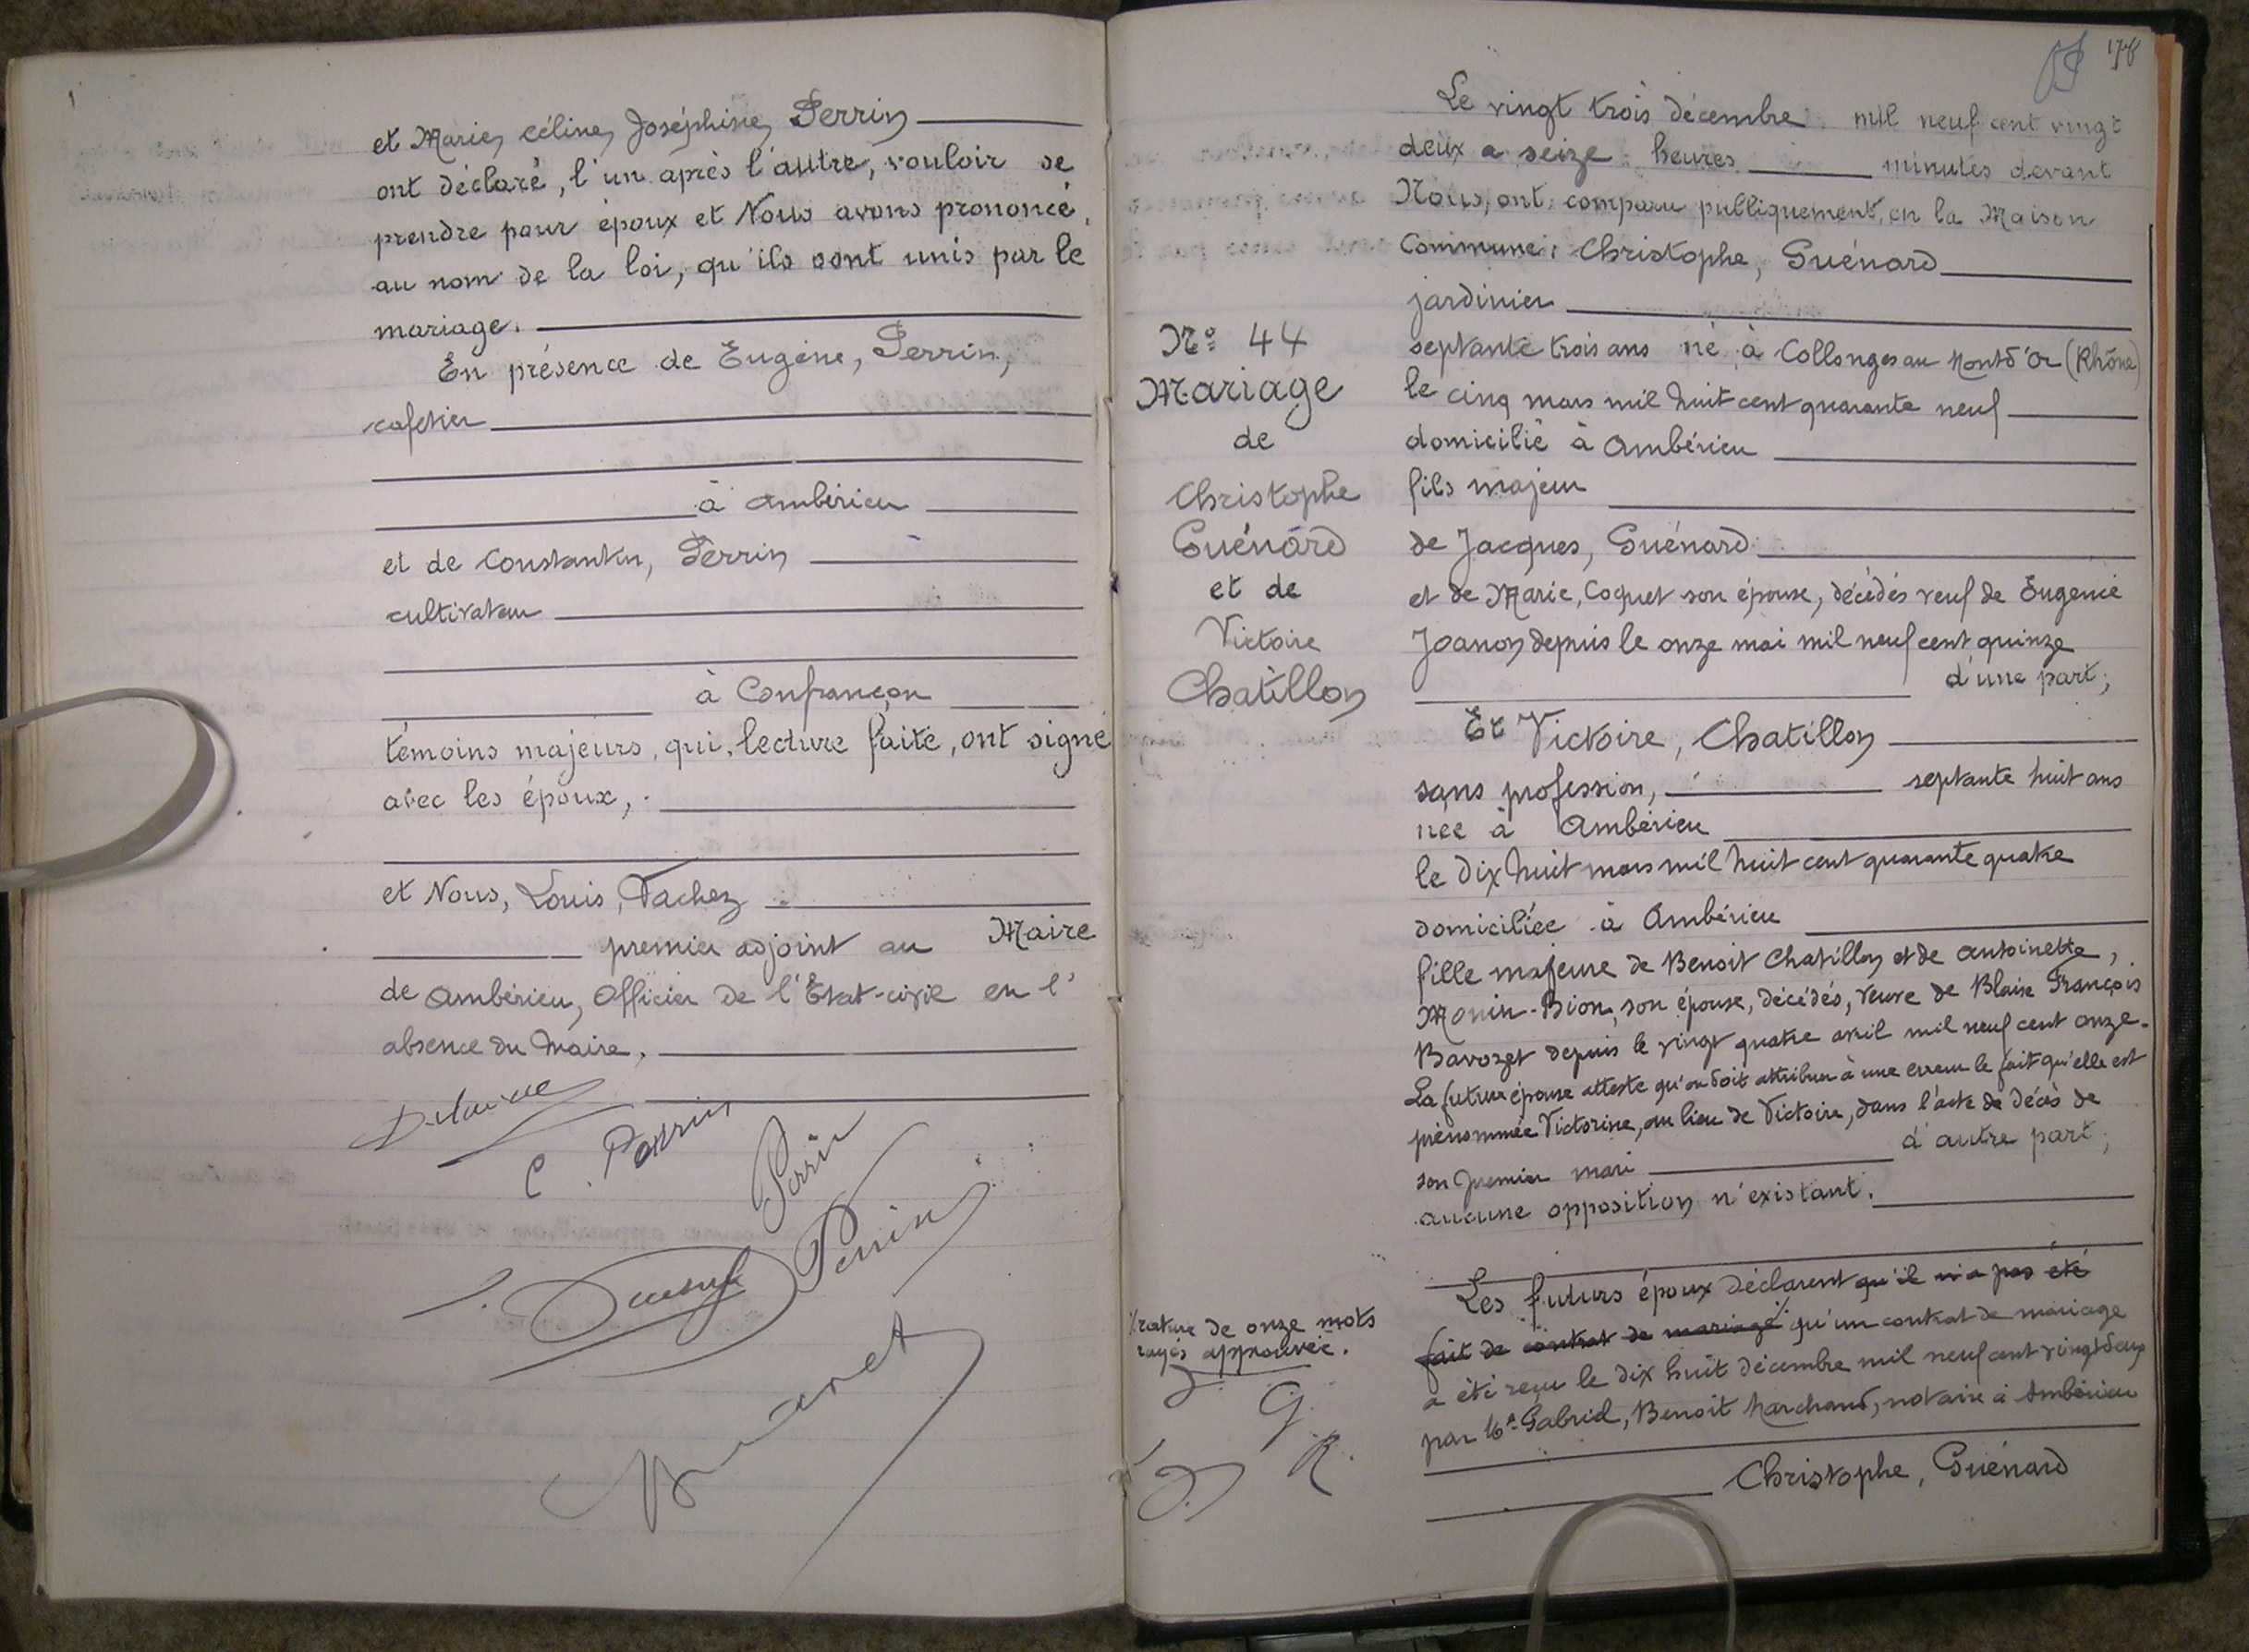 et Marie, Céline, Joséphine, Perrin
ont déclaré, l'un après l'autre, vouloir se
prendre pour époux et Nous avons prononcé,
au nom de la loi, qu'ils sont unis par le
mariage.
En présence de Eugène, Perrin,
cafetier
à Ambérieu
et de Constantin, Perrin
cultivateur
à Confrançon
témoins majeurs, qui, lecture faite, ont signé
avec les époux,
et Nous, Louis, Tachez
premier adjoint au Maire
de Ambérieu, Officier de l'Etat-civil en l'
absence du Maire.
C. Perrin
Perrin
Perrin
178
Le vingt trois décembre mil neuf cent vingt
deux a seize heures minutes devant
Nous, ont comparu publiquement, en la Maison
Commune: Christophe, Guénard
jardinier
septante trois ans né à Collonges au Mont d'Or (Rhône)
le cinq mars mil huit cent quarante neuf
domicilié à Ambérieu
fils majeur
de Jacques, Guénard
et de Marie, Coquet son épouse, décédés veuf de Eugénie
Joanon depuis le onze mai mil neuf cent quinze
d'une part;
Et Victoire, Chatillon
sans profession, septante huit ans
née à Ambérieu
le dix huit mars mil huit cent quarante quatre
domiciliée à Ambérieu
fille majeure de Benoit Chatillon et de Antoinette,
Monin-Bion, son épouse, décédés, veuve de Blaise François
Bavozet depuis le vingt quatre avril mil neuf cent onze.
La future épouse atteste qu'on doit attribuer à une erreur le fait qu'elle est
prénommée Victorine, au lieu de Victoire, dans l'acte de décès de
son premier mari d'autre part;
aucune opposition n'existant.
Les futurs époux déclarent qu'il n'a pas été
fait de contrat de mariage % qu'un contrat de mariage
a été reçu le dix huit décembre mil neuf cent vingt deux
par Me Gabriel, Benoit Marchand, notaire à Ambérieu
Christophe, Guénard
No 44
Mariage
de
Christophe
Guénard
et de
Victoire
Chatillon
% rature de onze mots
rayés approuvée.
G
R.